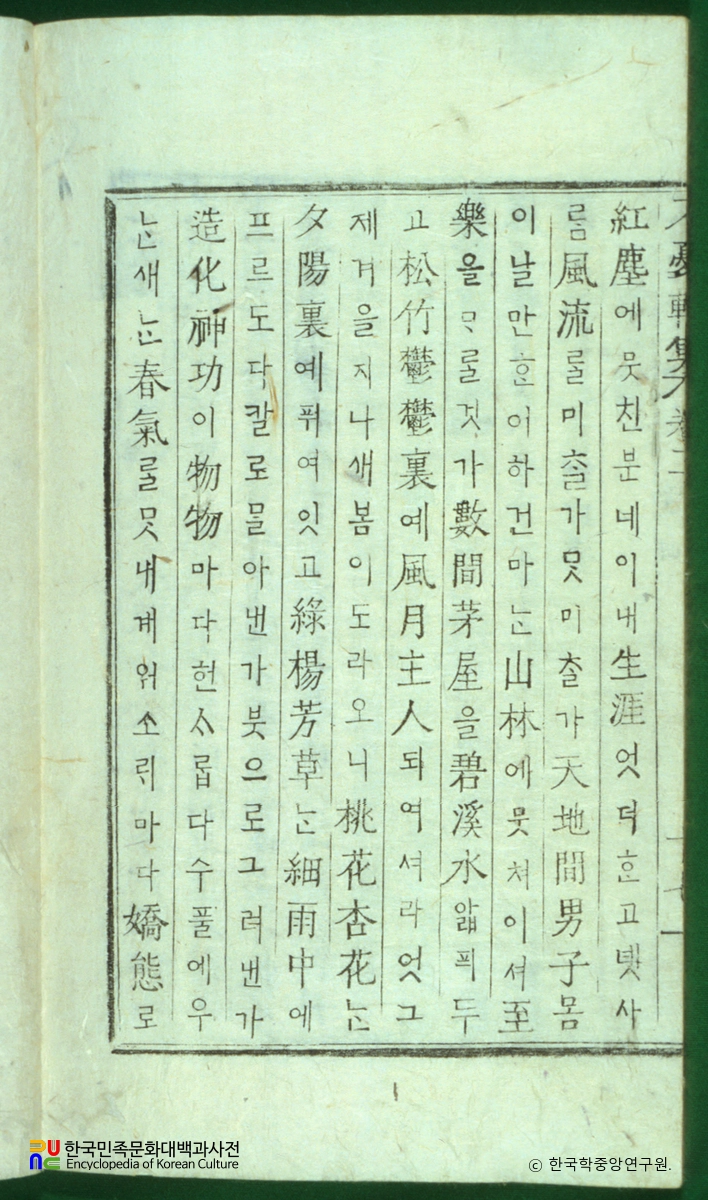 不憂軒集 卷二
紅塵에뭇친분네이내生涯엇더ᄒᆞᆫ고녯사
ᄅᆞᆷ風流ᄅᆞᆯ미ᄎᆞᆯ가ᄆᆞᆺ미ᄎᆞᆯ가天地間男子몸
이날만ᄒᆞᆫ이하건마ᄂᆞᆫ山林에뭇쳐이셔至
樂을ᄆᆞᄅᆞᆯ것가數間茅屋을碧溪水앏픠두
고松竹鬱鬱裏예風月主人되여셔라엇그
제겨을지나새봄이도라오니桃花杏花ᄂᆞᆫ
夕陽裏예퓌여잇고綠楊芳草ᄂᆞᆫ細雨中에
프르도다칼로ᄆᆞᆯ아낸가붓으로그려낸가
造化神功이物物마다헌ᄉᆞ롭다수풀에우
ᄂᆞᆫ새ᄂᆞᆫ春氣ᄅᆞᆯᄆᆞᆺ내계워소ᄅᆡ마다嬌態로
한국민족문화대백과사전
Encyclopedia of Korean Culture
© 한국학중앙연구원.